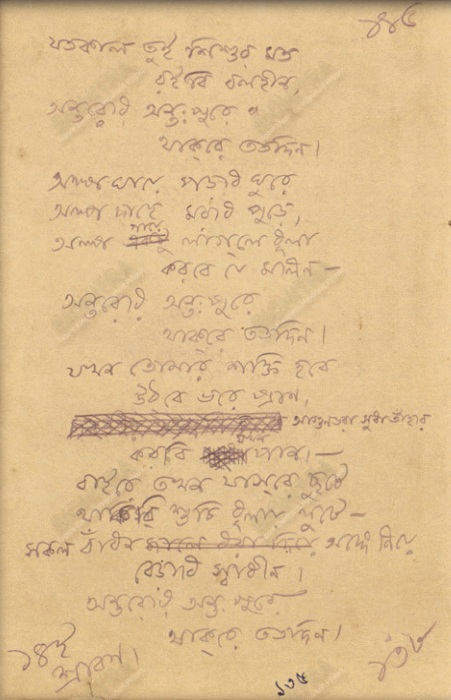 ১৪৫
যতকাল তুই শিশুর মত
রইবি বলহীন,
অন্তরেরি অন্তঃপুরে
থাক্‌রে ততদিন।
অল্প ঘায়ে পড়বি ঘুরে
অল্প দাহে মরবি পুড়ে,
অল্প গায়ে লাগ্‌লে ধূলা
করবে যে মলিন—
অন্তরেরি অন্তঃপুরে
থাক্‌রে ততদিন।
যখন তোমার শক্তি হবে
উঠবে ভরে প্রাণ,
আগুনভরা সুধা তাঁহার
করবি যখন পান।—
বাইরে তখন যাস্‌রে ছুটে
থাকবি শুচি ধূলায় লুটে—
সকল বাঁধন অঙ্গে নিয়ে
বেড়াবি স্বাধীন।
অন্তরেরি অন্তঃপুরে
থাক্‌রে ততদিন।
শ্রাবণ।
১৩৫